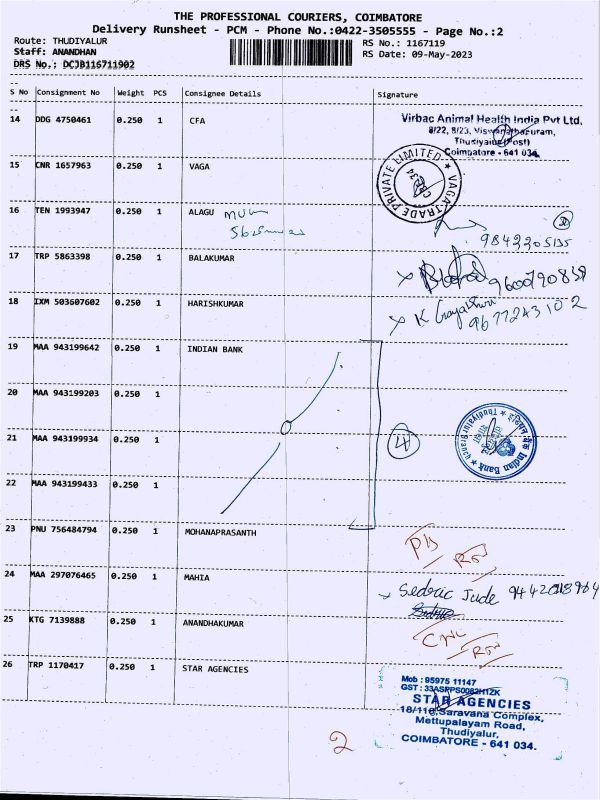 THE PROFESSIONAL COURIERS, COIMBATORE
Delivery Runsheet - PCM - Phone No.:0422-3505555 - Page No.:2
Route: THUDIYALUR
Staff: ANANDHAN
DRS No.: DCJB116711902
RS No.: 1167119
RS Date: 09-May-2023
S No Consignment No Weight PCS Consignee Details Signature
14 DDG 4750461 0.250 1 CFA
Virbac Animal Health India Pvt Ltd,
8/22, 8/23, Viswanathapuram,
Thudiyalur(Post)
Coimbatore - 641 034.
15 CNR 1657963 0.250 1 VAGA
VAGA TRADE PRIVATE LIMITED
CBE-34
16 TEN 1993947 0.250 1 ALAGU
9842205135
17 TRP 5863398 0.250 1 BALAKUMAR
18 IXM 503607602 0.250 1 HARISHKUMAR
K Gayathri
9677243102
19 MAA 943199642 0.250 1 INDIAN BANK
20 MAA 943199203 0.250 1
21 MAA 943199934 0.250 1
4
Indian Bank
Thudiyalur
22 MAA 943199433 0.250 1
23 PNU 756484794 0.250 1 MOHANAPRASANTH
24 MAA 297076465 0.250 1 MAHIA
Sedric Jude
25 KTG 7139888 0.250 1 ANANDHAKUMAR
26 TRP 1170417 0.250 1 STAR AGENCIES
Mob : 95975 11147
GST : 33ASPPS0082H1ZK
STAR AGENCIES
18/116, Saravana Complex,
Mettupalayam Road,
Thudiyalur,
COIMBATORE - 641 034.
2